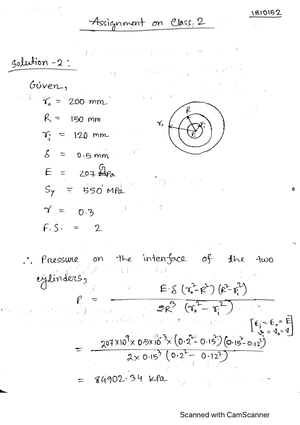 1810152
Assignment on Class 2
Solution-2:
Given,
r₀ = 200 mm
R = 150 mm
rᵢ = 120 mm
δ = 0.5 mm
E = 207 GPa
Sy = 550 MPa
γ = 0.3
F.S. = 2
R
r₀
rᵢ
∴ Pressure on the interface of the two
cylinders,
P = E.δ (r₀²-R²) (R²-rᵢ²) / 2R³ (r₀²-rᵢ²)
[Eᵢ = E₀ = E
νᵢ = ν₀ = ν]
= 207×10⁹ × 0.5×10⁻³ × (0.2²-0.15²) (0.15²-0.12²) / 2×0.15³ (0.2²-0.12²)
= 84902.34 kPa
Scanned with CamScanner